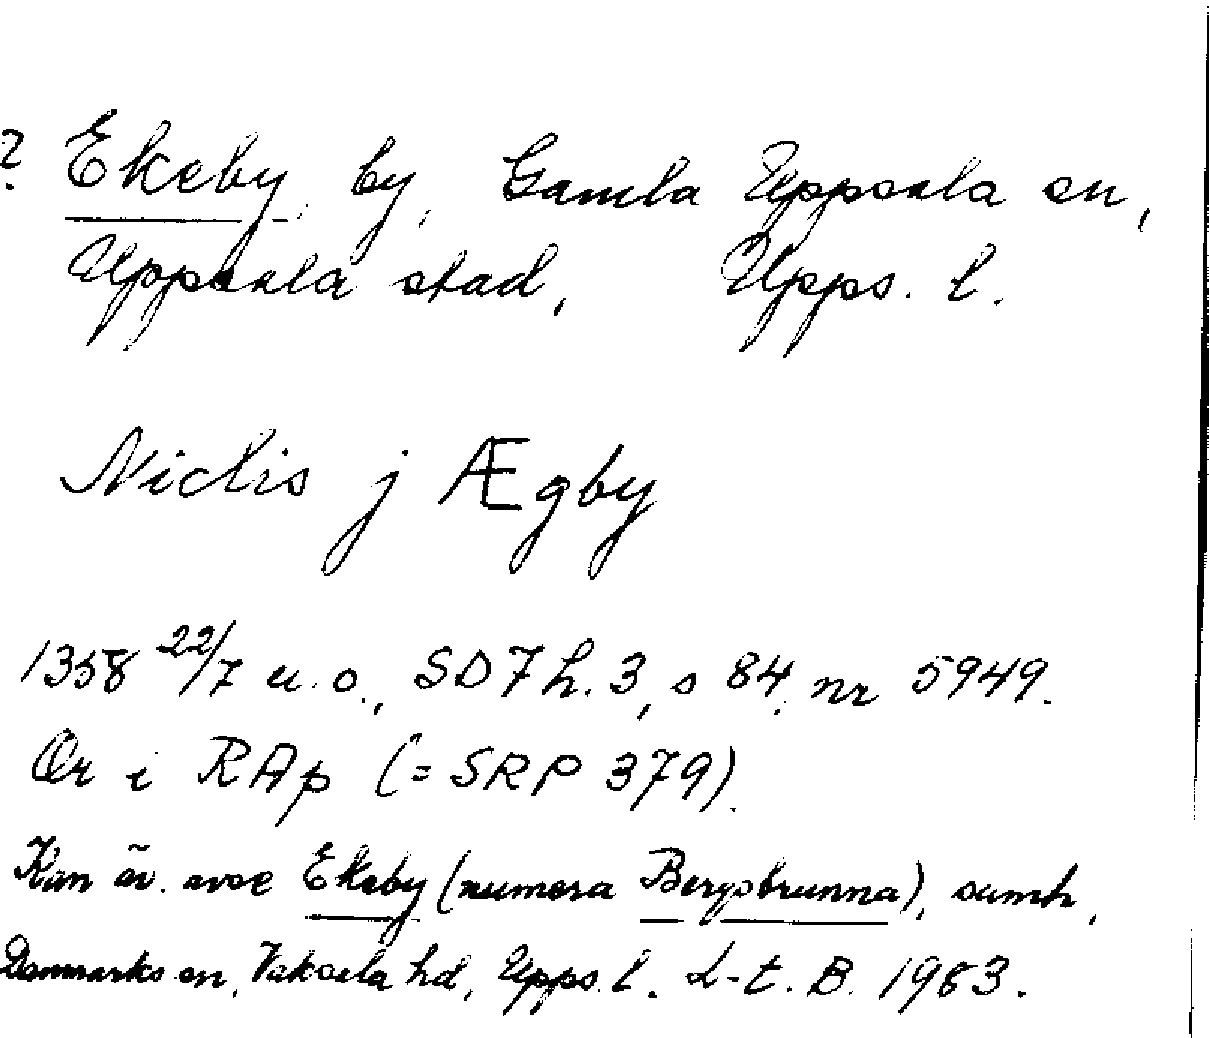 ? Ekeby by, Gamla Uppsala sn,
Uppsala stad, Upps. l.
Niclis j Ægby
1358 22/7 u.o., SD 7 h. 3, s 84, nr 5949.
Or i RAp (= SRP 379).
Kan äv. avse Ekeby (numera Bergsbrunna), sumh,
Danmarks sn, Vaksala hd, Upps. l. L-t. B. 1983.